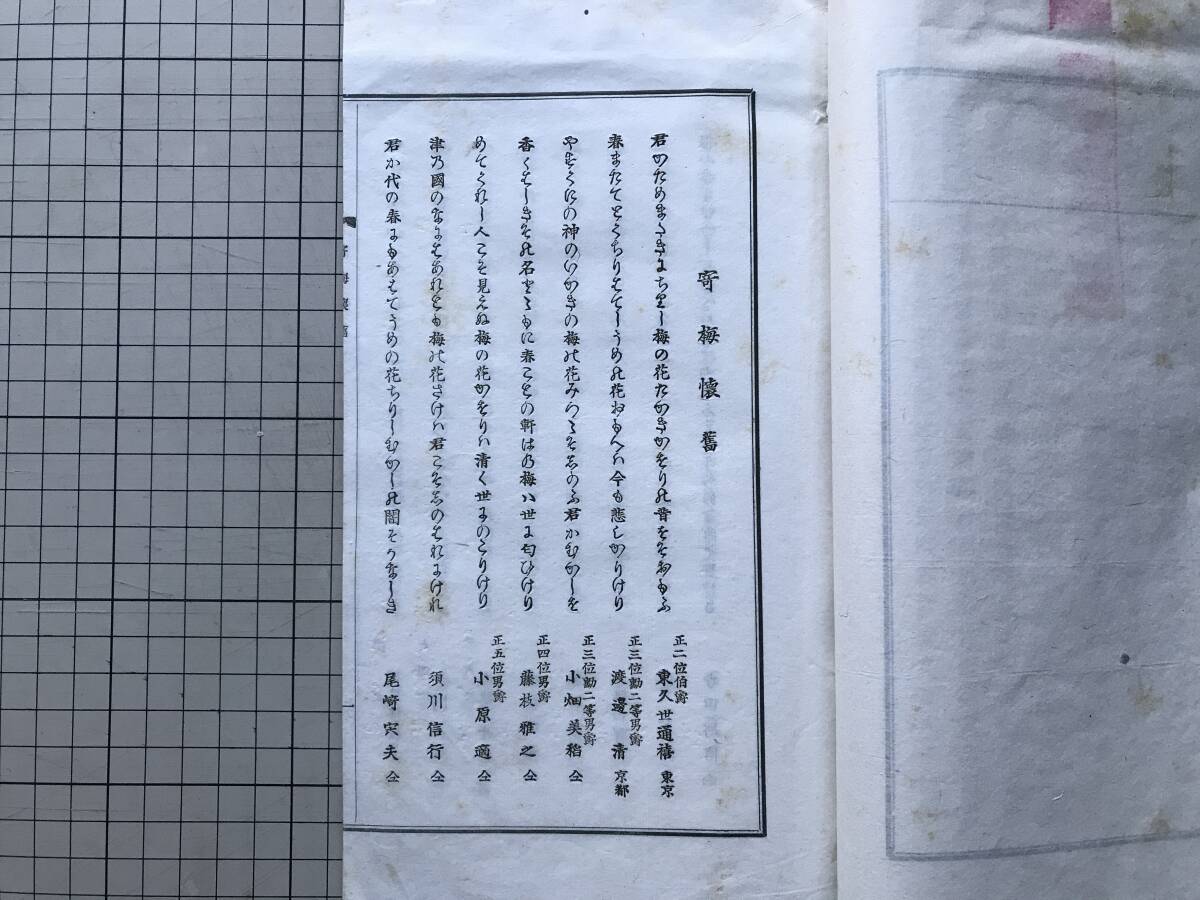 寄梅懷舊
君のためまさきにちりし梅の花たかきかをりの昔をそおもふ
正二位伯爵
東久世通禧 東京
春またてとくちりはてしうめの花おもへハ今も悲しかりけり
正三位勳二等男爵
渡邊清 京都
やすくにの神のいかきの梅の花みつゝそしのふ君かむかしを
正三位勳二等男爵
小畑美稻 仝
香くはしきその名とゝもに春ことの軒はの梅ハ世に匂ひけり
正四位男爵
藤枝雅之 仝
めてくれし人こそ見えぬ梅の花かをりハ清く世にのこりけり
正五位男爵
小原適 仝
津乃國のなにはあれとも梅の花さけハ君こそしのはれにけれ
須川信行 仝
君か代の春にもあはてうめの花ちりしむかしの闇そかなしき
尾崎宍夫 仝
寄梅懷舊